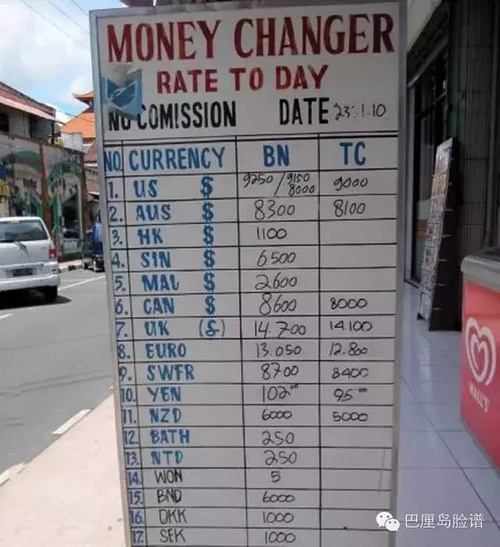 MONEY CHANGER
RATE TO DAY
NO COMISSION DATE 23.1.10
NO. CURRENCY BN TC
1. US $ 9250/9150/8000 9000
2. AUS $ 8300 8100
3. HK $ 1100
4. SIN $ 6500
5. MAL $ 2600
6. CAN $ 8600 8000
7. UK (£) 14.700 14.100
8. EURO 13.050 12.800
9. SWFR 8700 8400
10. YEN 102.00 95.00
11. NZD 6000 5000
12. BATH 250
13. NTD 250
14. WON 5
15. BND 6000
16. DKK 1000
17. SEK 1000
WALL'S
巴厘岛脸谱